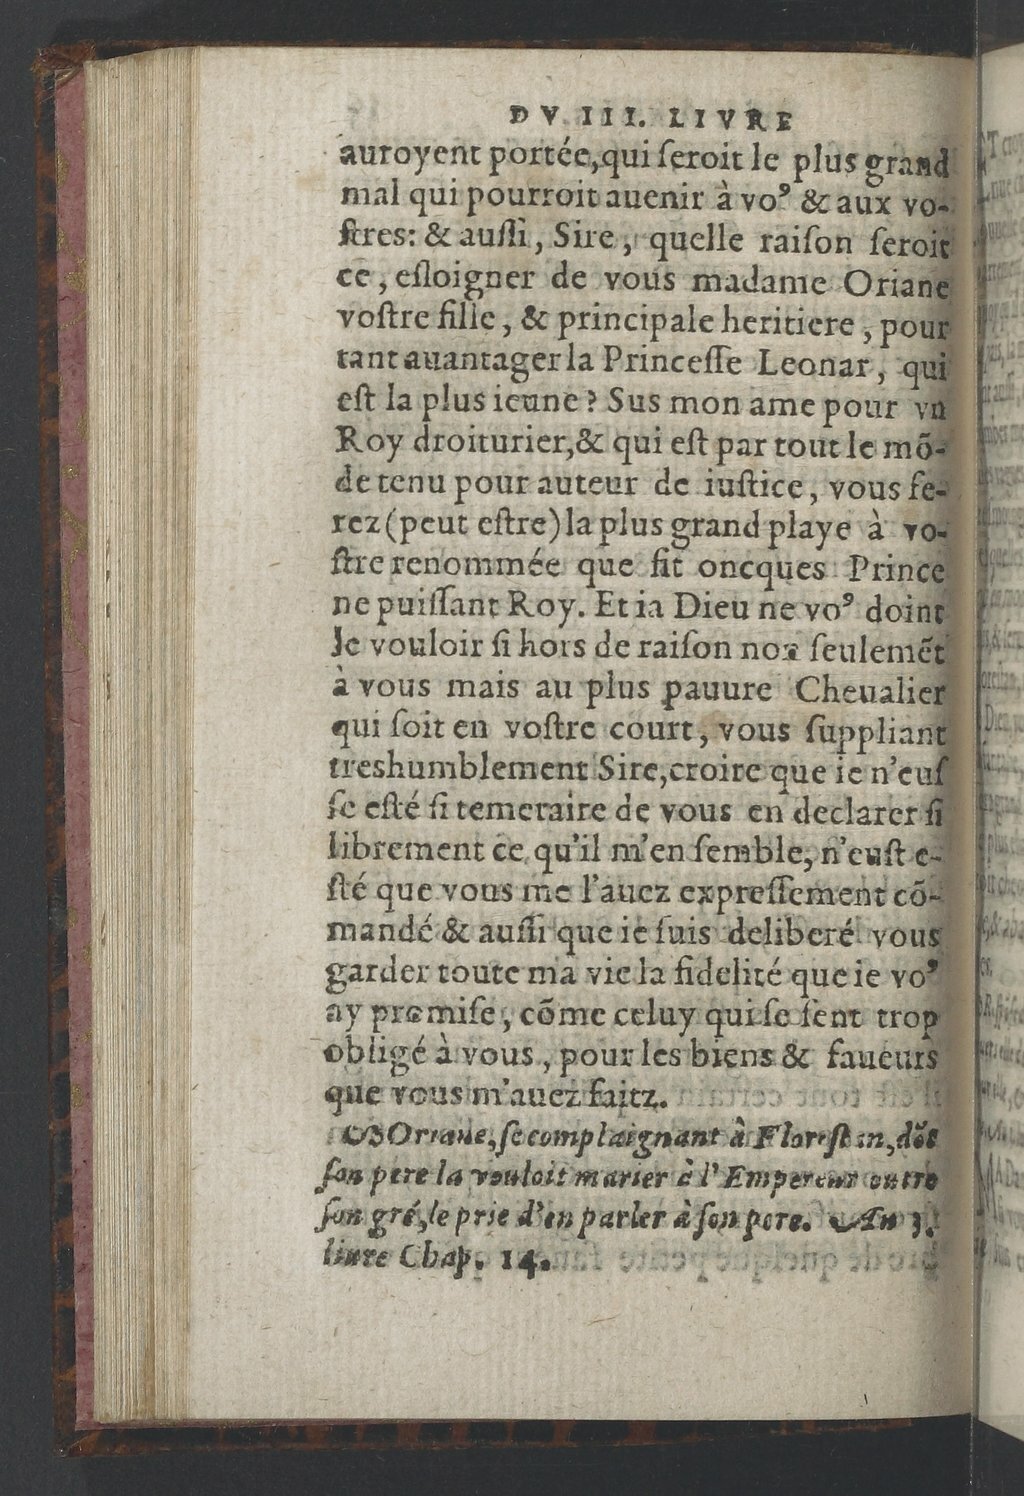 DV III. LIVRE
auroyent portée,qui ſeroit le plus grand
mal qui pourroit auenir à voꝰ & aux vo-
ſtres: & auſſi, Sire, quelle raiſon ſeroit
ce, eſloigner de vous madame Oriane
voſtre fille, & principale heritiere, pour
tant auantager la Princeſſe Leonar, qui
eſt la plus ieune? Sus mon ame pour vn
Roy droiturier,& qui eſt par tout le mõ-
de tenu pour auteur de iuſtice, vous fe-
rez (peut eſtre) la plus grand playe à vo-
ſtre renommée que fit oncques Prince
ne puiſſant Roy. Et ia Dieu ne voꝰ doint
le vouloir ſi hors de raiſon non ſeulemẽt
à vous mais au plus pauure Cheualier
qui ſoit en voſtre court, vous ſuppliant
treshumblement Sire,croire que ie n'euſ
ſe eſté ſi temeraire de vous en declarer ſi
librement ce qu'il m'en ſemble, n'euſt e-
ſté que vous me l'auez expreſſement cõ-
mandé & auſſi que ie ſuis deliberé vous
garder toute ma vie la fidelité que ie voꝰ
ay promiſe, cõme celuy qui ſe ſent trop
obligé à vous, pour les biens & faueurs
que vous m'auez faitz.
Oriane, ſe complaignant à Floreſtan, dõt
ſon pere la vouloit marier à l'Empereur outre
ſon gré, le prie d'en parler à ſon pere. Au 3.
liure Chap. 14.